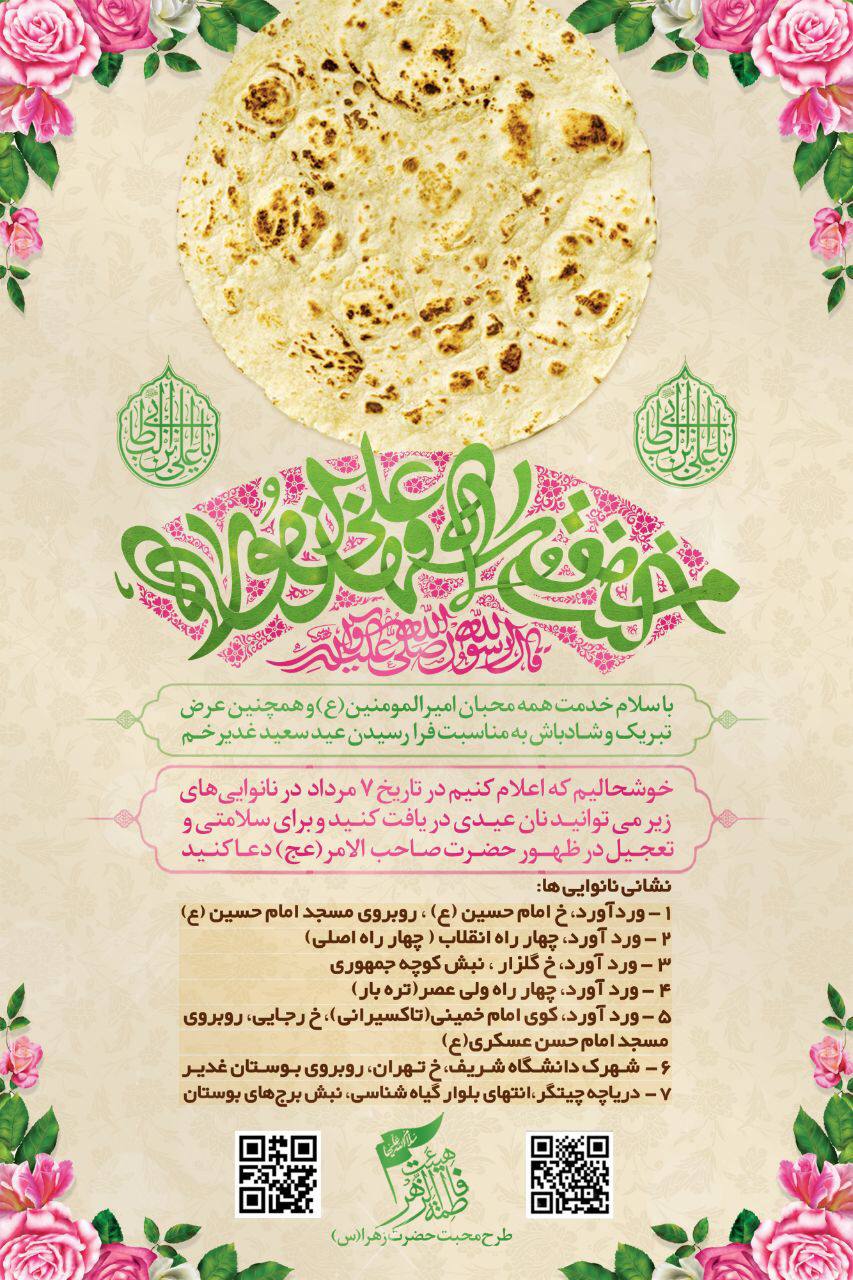 یا علی بن ابیطالب
یا علی بن ابیطالب
قال رسول الله صلی الله علیه و آله
با سلام خدمت همه محبان امیرالمومنین(ع) و همچنین عرض
تبریک و شادباش به مناسبت فرا رسیدن عید سعید غدیر خم
خوشحالیم که اعلام کنیم در تاریخ ۷ مرداد در نانوایی‌های
زیر می توانید نان عیدی دریافت کنید و برای سلامتی و
تعجیل در ظهور حضرت صاحب الامر(عج) دعا کنید
نشانی نانوایی ها:
۱ - وردآورد، خ امام حسین (ع) ، روبروی مسجد امام حسین (ع)
۲ - ورد آورد، چهار راه انقلاب ( چهار راه اصلی)
۳ - ورد آورد، خ گلزار ، نبش کوچه جمهوری
۴ - ورد آورد، چهار راه ولی عصر(تره بار)
۵ - ورد آورد، کوی امام خمینی(تاکسیرانی)، خ رجایی، روبروی
مسجد امام حسن عسکری(ع)
۶ - شهرک دانشگاه شریف، خ تهران، روبروی بوستان غدیر
۷ - دریاچه چیتگر، انتهای بلوار گیاه شناسی، نبش برج‌های بوستان
هیئت
فاطمة الزهرا
طرح محبت حضرت زهرا(س)